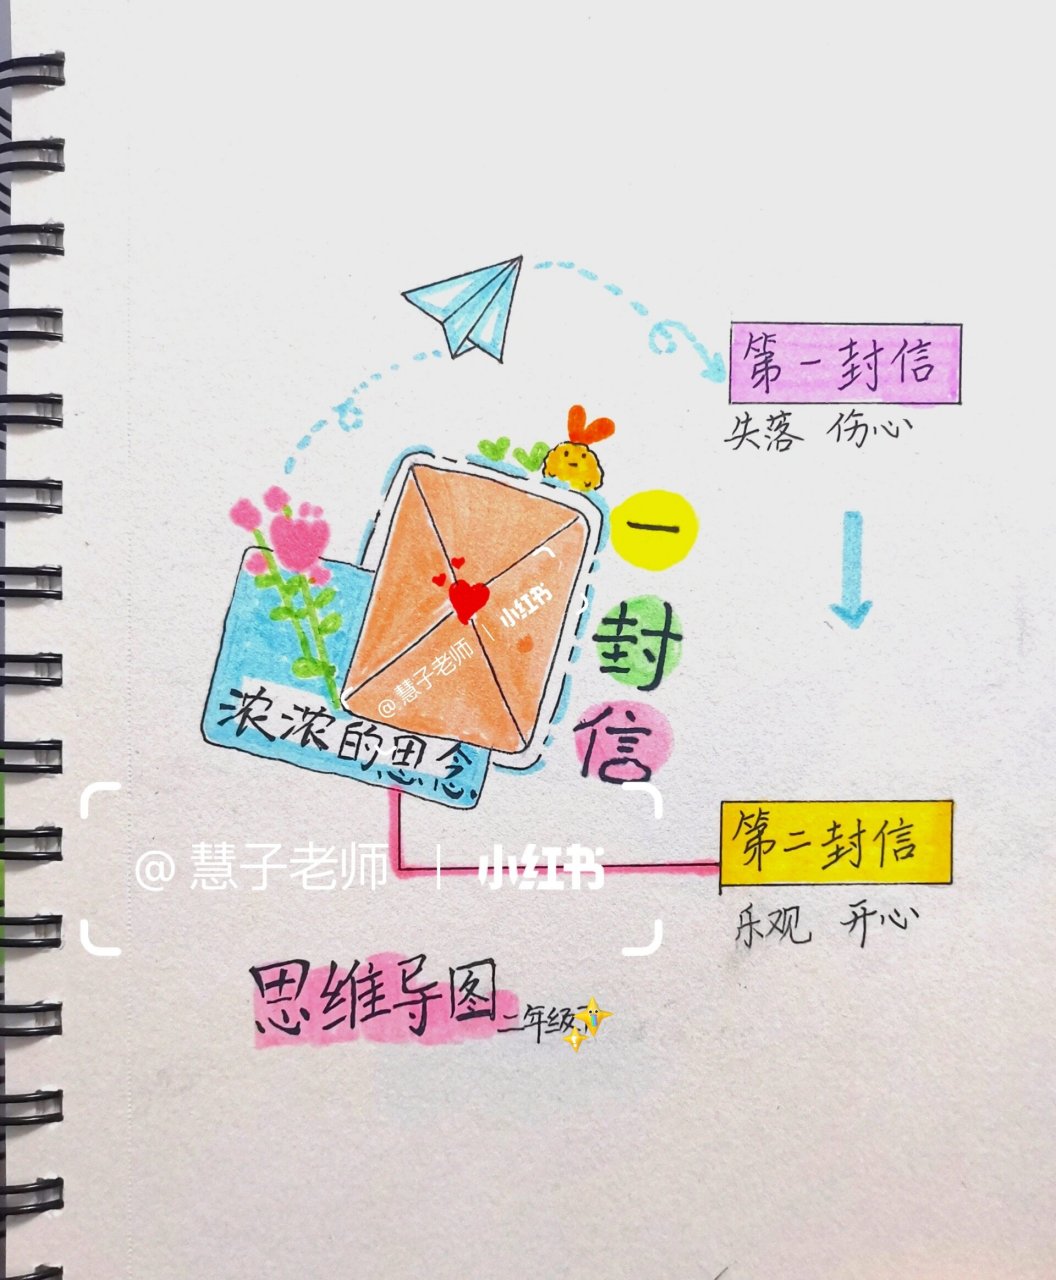 第一封信
失落 伤心
一封信
@慧子老师 | 小红书
浓浓的思念
第二封信
乐观 开心
@慧子老师 | 小红书
思维导图
二年级